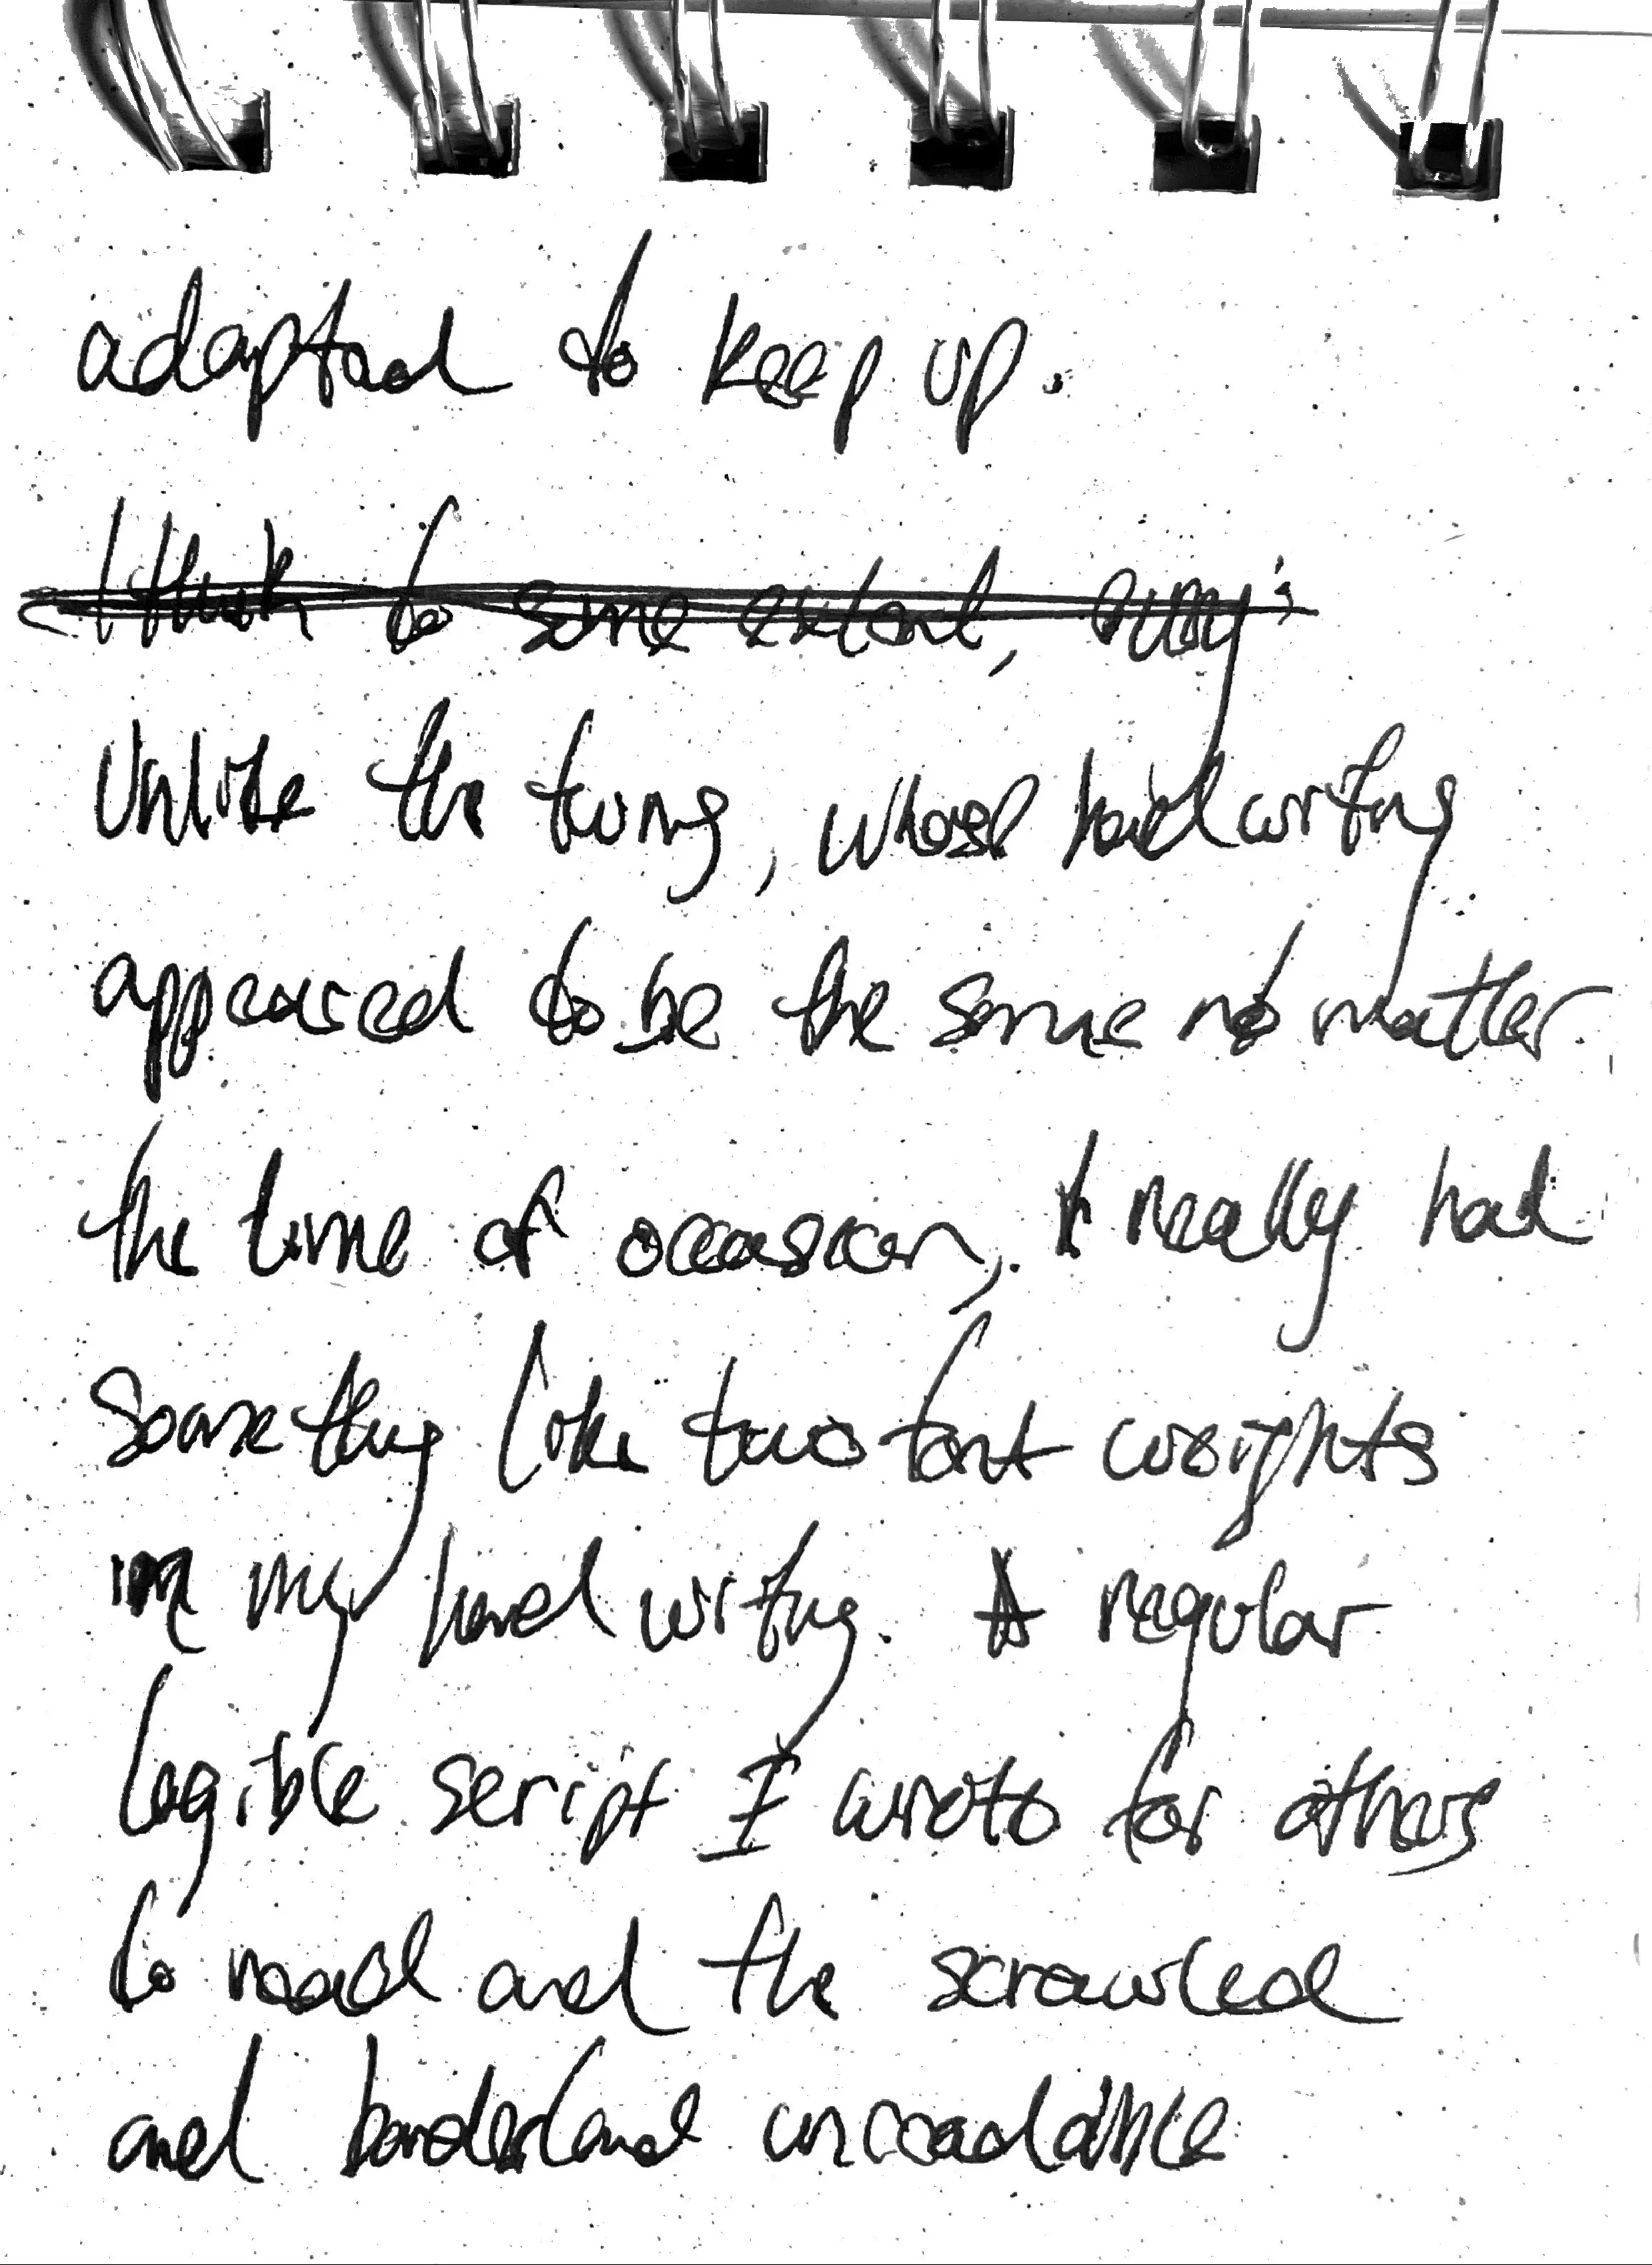 adapted to keep up.
I think to some extent,
Unlike the twins, whose handwriting
appeared to be the same no matter
the time of occasion, I really had
something like two font weights
in my handwriting. A regular
legible script I wrote for others
to read and the scrawled
and borderland unreadable